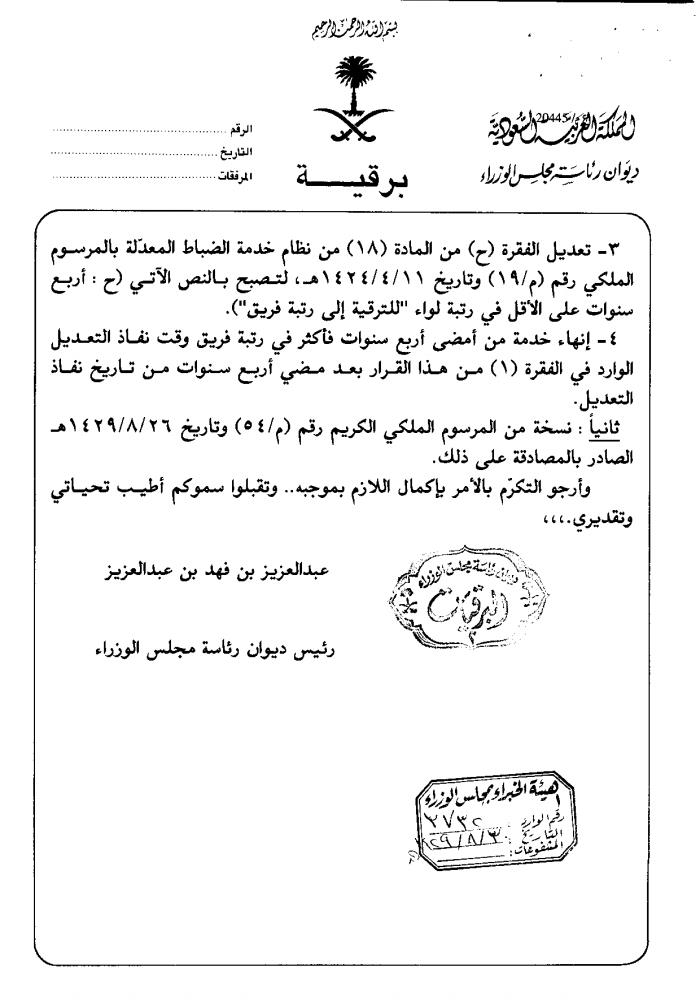 بسم الله الرحمن الرحيم
المملكة العربية السعودية
20445
ديوان رئاسة مجلس الوزراء
الرقم
التاريخ
المرفقات
برقية
٣- تعديل الفقرة (ح) من المادة (١٨) من نظام خدمة الضباط المعدّلة بالمرسوم
الملكي رقم (م/١٩) وتاريخ ١٤٢٤/٤/١١هـ، لتصبح بالنص الآتي (ح : أربع
سنوات على الأقل في رتبة لواء "للترقية إلى رتبة فريق").
٤- إنهاء خدمة من أمضى أربع سنوات فأكثر في رتبة فريق وقت نفاذ التعديل
الوارد في الفقرة (١) من هذا القرار بعد مضي أربع سنوات من تاريخ نفاذ
التعديل.
ثانياً : نسخة من المرسوم الملكي الكريم رقم (م/٥٤) وتاريخ ١٤٢٩/٨/٢٦هـ
الصادر بالمصادقة على ذلك.
وأرجو التكرّم بالأمر بإكمال اللازم بموجبه.. وتقبلوا سموكم أطيب تحياتي
وتقديري.،،،
عبدالعزيز بن فهد بن عبدالعزيز
رئيس ديوان رئاسة مجلس الوزراء
ديوان رئاسة مجلس الوزراء
البرقيات
هيئة الخبراء بمجلس الوزراء
رقم الوارد: ٢٧٣٢
التاريخ: ٢٩/٨/٣٠
المشفوعات: